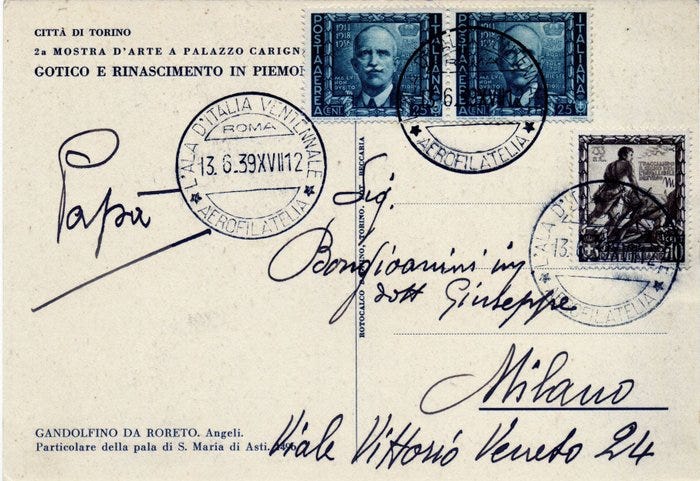 CITTÀ DI TORINO
2a MOSTRA D'ARTE A PALAZZO CARIGN
GOTICO E RINASCIMENTO IN PIEMON
POSTA AEREA
ITALIANA
CENT 25
POSTA AEREA
ITALIANA
25
L'ALA D'ITALIA VENTENNALE
ROMA
13.6.39XVII12
AEROFILATELIA
6.39XVII
AEROFILATELIA
L'ALA D'ITALIA
13.
AEROFILATELIA
Papà
Sig.
Bongioannini ing
dott Giuseppe
Milano
Viale Vittorio Veneto 24
ROTOCALCO
TORINO
BECCARIA
GANDOLFINO DA RORETO. Angeli.
Particolare della pala di S. Maria di Asti. 1496